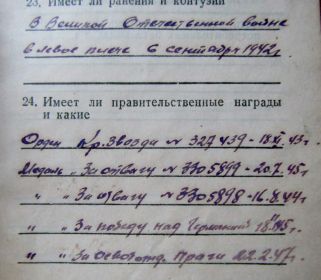 23. Имеет ли ранения и контузии
В Великой Отечественной войне
в левое плечо 6 сентября 1942 г.
24. Имеет ли правительственные награды
и какие
Орден Кр. Звезда № 327439 - 18.XI.43 г.
Медаль „За отвагу № 3305899 - 20.2.45 г.
" " За отвагу № 3305898 - 16.8.44 г.
" " За победу над Германией 1945 г.
" " За освобожд. Праги 22.2.47 г.